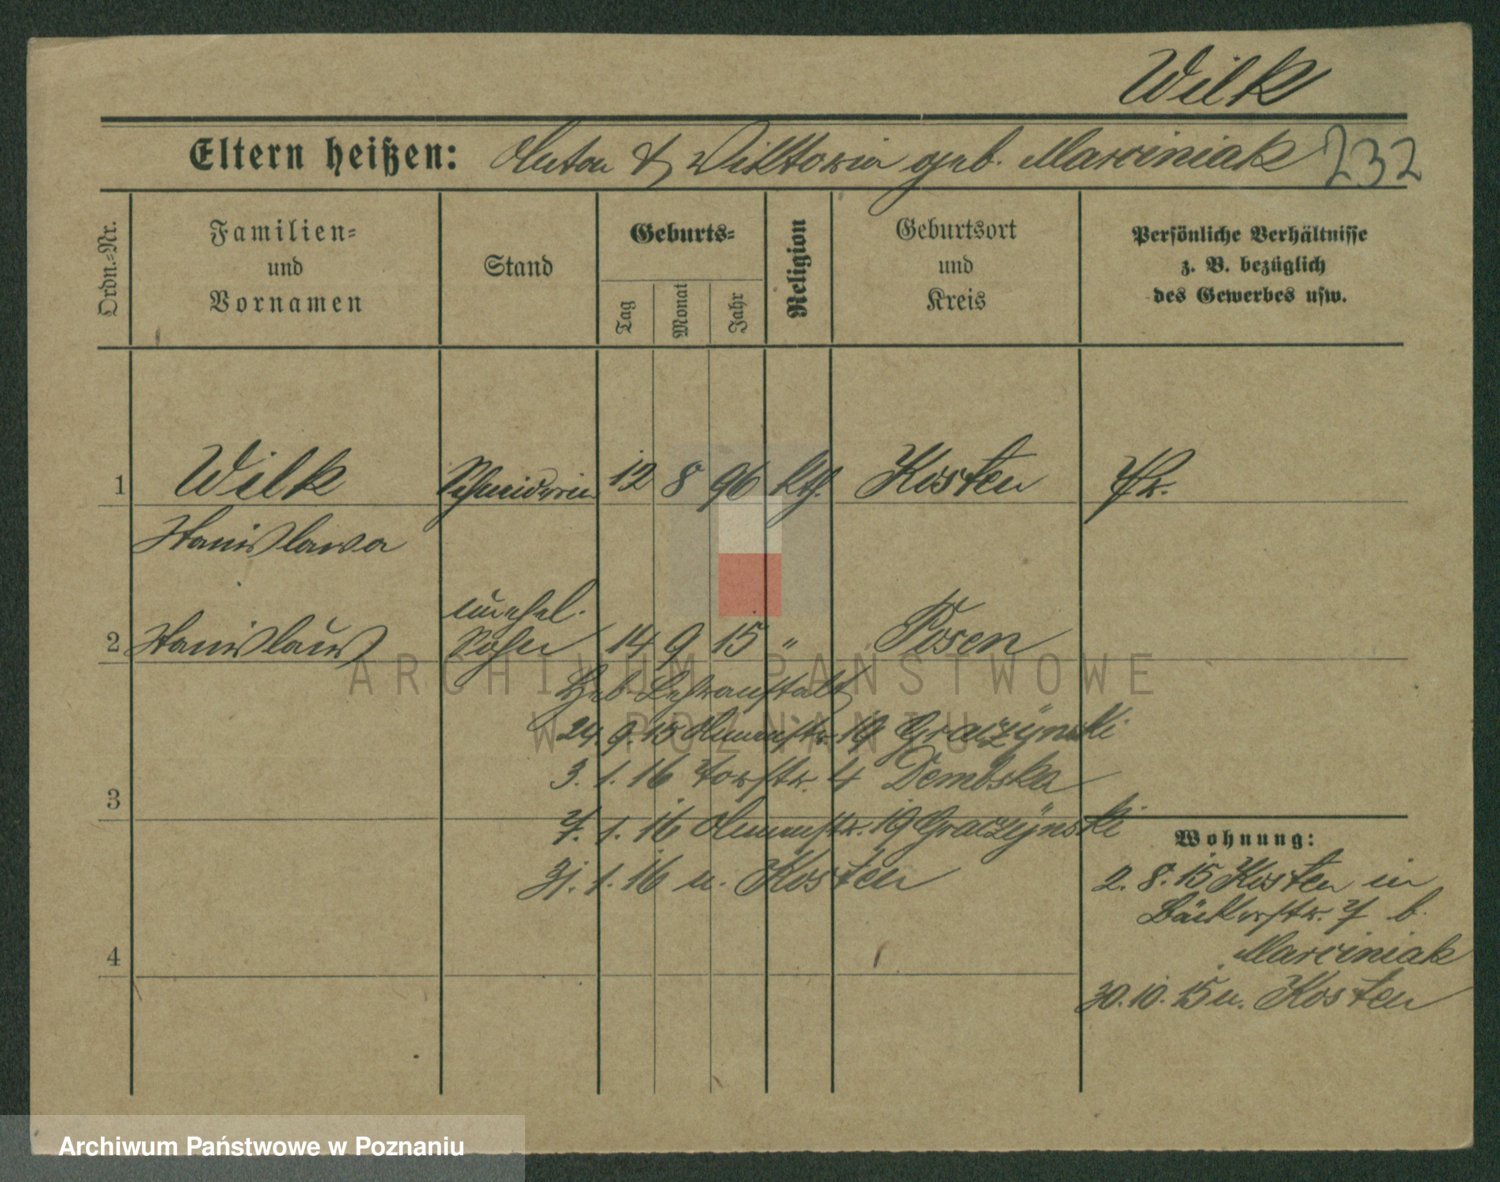 Wilk
Eltern heißen: Anton & Wiktoria geb. Marciniak 232
Ordn.-Nr.
Familien-
und
Vornamen
Stand
Geburts-
Tag
Monat
Jahr
Religion
Geburtsort
und
Kreis
Persönliche Verhältnisse
z. B. bezüglich
des Gewerbes usw.
1 Wilk Schneiderin 12 8 96 kth. Kosten Pr.
Stanislawa
unehel.
2 Stanislaus Sohn 14 9 15 " Posen
Heb. Lehranstalt
24. 9. 15 19 Graczynski
3. 1. 16 Torstr. 4 Dembska
3
7. 1. 16 19 Graczynski
31. 1. 16 n. Kosten
Wohnung:
2. 8. 15 Kosten in
Bäckerstr. 7 b.
Marciniak
30. 10. 15 n. Kosten
4
ARCHIWUM PAŃSTWOWE
W POZNANIU
Archiwum Państwowe w Poznaniu